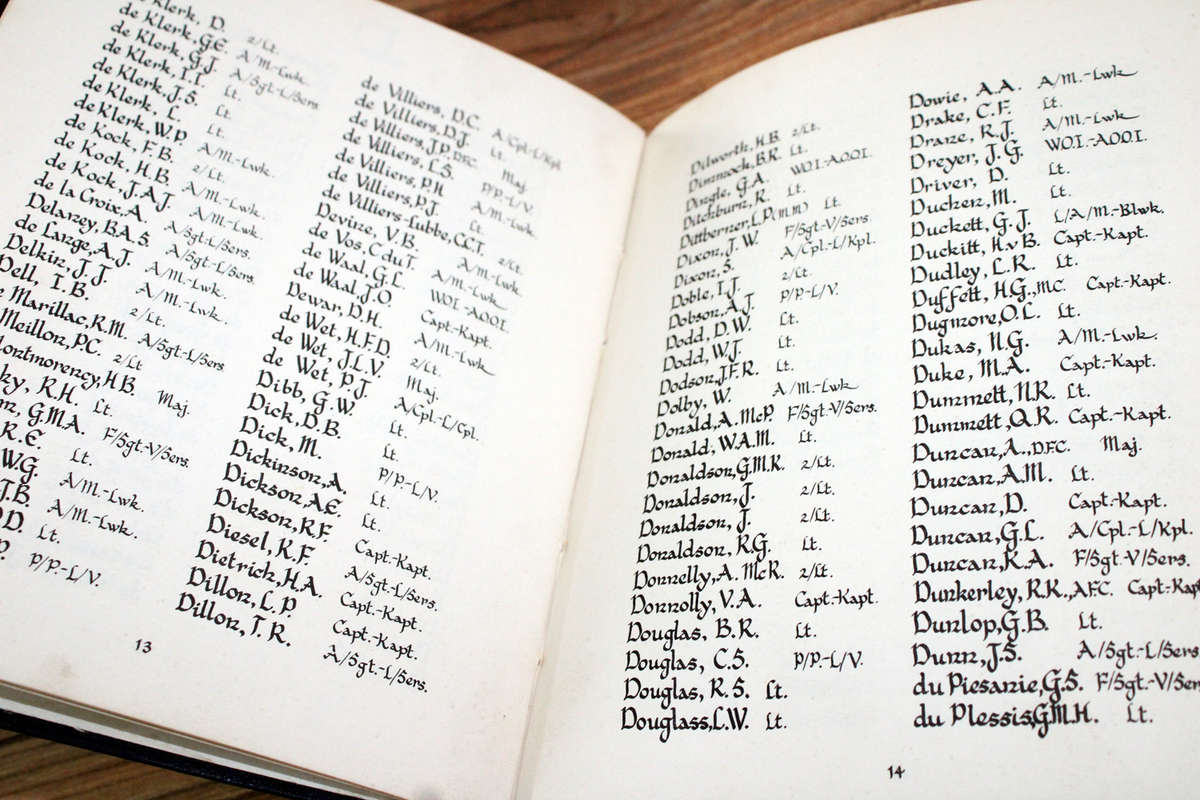 de Klerk, D. 2/Lt.
de Klerk, G.E. A/M.-Lwk.
de Klerk, G.J. A/Sgt.-L/Sers.
de Klerk, I.I. Lt.
de Klerk, J.S. Lt.
de Klerk, L. Lt.
de Klerk, W.P. A/M.-Lwk.
de Kock, F.B. 2/Lt.
de Kock, H.B. A/M.-Lwk.
de Kock, J.A.J. A/M.-Lwk.
de la Croix, A. A/Sgt.-L/Sers.
Delaney, B.A.S. A/Sgt.-L/Sers.
de Lange, A.J. A/M.-Lwk.
Delkin, J.J. A/M.-Lwk.
Dell, I.B. 2/Lt.
Marillac, R.M. A/Sgt-L/Sers
Meillon, P.C. 2/Lt
ontmorency, H.B. Maj.
ky, R.H. Lt.
G.M.A. F/Sgt.-V/Sers.
R.E. Lt.
W.G. A/M.-Lwk.
J.B. A/M.-Lwk.
D. Lt.
P/P.-L/V.
de Villiers, D.C. A/Cpl-L/Kpl.
de Villiers, D.J. Lt.
de Villiers, J.P., DFC. Maj.
de Villiers, L.S. P/P.-L/V.
de Villiers, P.H. A/M.-Lwk
de Villiers, P.J. Lt.
de Villiers-Lubbe, C.C.T. 2/Lt.
Devine, V.B. A/M.-Lwk
de Vos, C.du T. A/M.-Lwk
de Waal, G.L. WO.I.-A.O.O.I.
de Waal, J.O. Capt.-Kapt.
Dewar, D.H. A/M.-Lwk
de Wet, H.F.D. 2/Lt.
de Wet, J.L.V. Maj.
de Wet, P.J. A/Cpl.-L/Cpl.
Dibb, G.W. Lt.
Dick, D.B. Lt.
Dick, M. P/P.-L/V.
Dickinson, A. Lt.
Dickson, A.E. Lt.
Dickson, R.F. Capt.-Kapt.
Diesel, K.F. A/Sgt.-L/Sers.
Dietrich, H.A. Capt.-Kapt.
Dillon, L.P Capt.-Kapt.
Dillon, T.R. A/Sgt.-L/Sers.
13
Dilworth, H.B. 2/Lt.
Dimmock, B.K. Lt.
Dingle, G.A. W.O.I.-A.O.O.I.
Ditchburn, R. Lt.
Dittberner, L.P. (M.M) Lt.
Dixon, J.W. F/Sgt.-V/Sers.
Dixon, S. A/Cpl.-L/Kpl.
Doble, I.J. 2/Lt.
Dobson, A.J. P/P.-L/V.
Dodd, D.W. Lt.
Dodd, W.J. Lt.
Dodson, J.F.R. Lt.
Dolby, W. A/M.-Lwk
Donald, A. McP. F/Sgt.-V/Sers.
Donald, W.A.M. Lt.
Donaldson, G.M.K. 2/Lt.
Donaldson, J. 2/Lt.
Donaldson, J. 2/Lt.
Donaldson, R.G. Lt.
Donnelly, A. McK. 2/Lt.
Donnolly, V.A. Capt.-Kapt.
Douglas, B.R. Lt.
Douglas, C.S. P/P.-L/V.
Douglas, R.S. Lt.
Douglass, L.W. Lt.
Dowie, A.A. A/M.-Lwk
Drake, C.F. Lt.
Drane, R.J. A/M.-Lwk
Dreyer, J.G. W.O.I.-A.O.O.I.
Driver, D. Lt.
Ducken, M. Lt.
Duckett, G.J. L/A/M.-Blwk.
Duckitt, H.v B. Capt.-Kapt.
Dudley, L.R. Lt.
Duffett, H.G., MC. Capt.-Kapt.
Dugmore, O.L. Lt.
Dukas, N.G. A/M.-Lwk.
Duke, M.A. Capt.-Kapt.
Dummett, N.R. Lt.
Dummett, Q.R. Capt.-Kapt.
Duncan, A., D.F.C. Maj.
Duncan, A.M. Lt.
Duncan, D. Capt.-Kapt.
Duncan, G.L. A/Cpl.-L/Kpl.
Duncan, K.A. F/Sgt.-V/Sers.
Dunkerley, R.K., A.F.C. Capt-Kapt
Dunlop, G.B. Lt.
Dunn, J.S. A/Sgt.-L/Sers
du Piesanie, G.S. F/Sgt.-V/Sers
du Plessis, G.M.H. Lt.
14